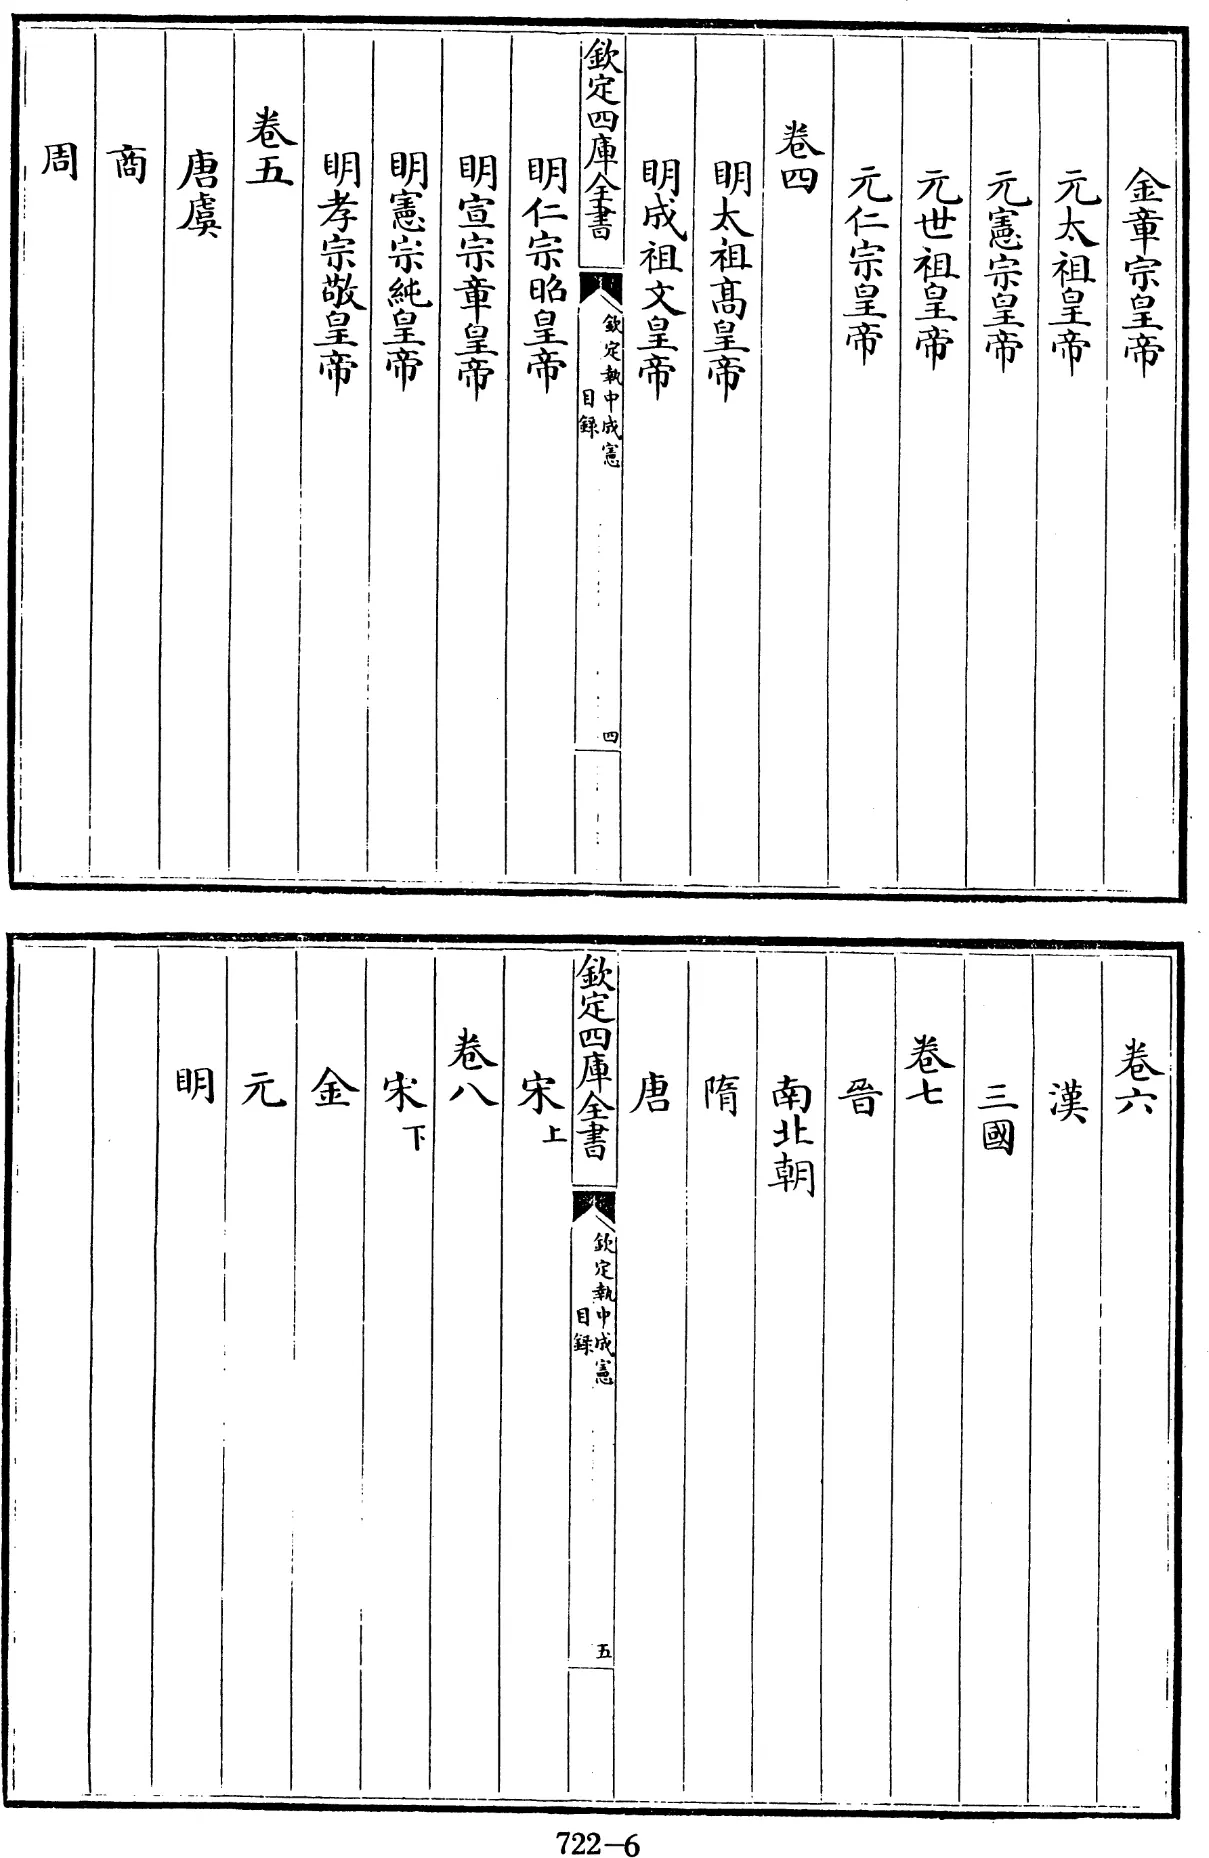 金章宗皇帝
元太祖皇帝
元憲宗皇帝
元世祖皇帝
元仁宗皇帝
卷四
明太祖高皇帝
明成祖文皇帝
欽定四庫全書
欽定執中成憲
目録
四
明仁宗昭皇帝
明宣宗章皇帝
明憲宗純皇帝
明孝宗敬皇帝
卷五
唐虞
商
周
卷六
漢
三國
卷七
晉
南北朝
隋
唐
欽定四庫全書
欽定執中成憲
目録
五
宋上
卷八
宋下
金
元
明
722-6